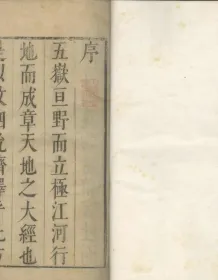 序
五嶽亘野而立極江河行
地而成章天地之大經也